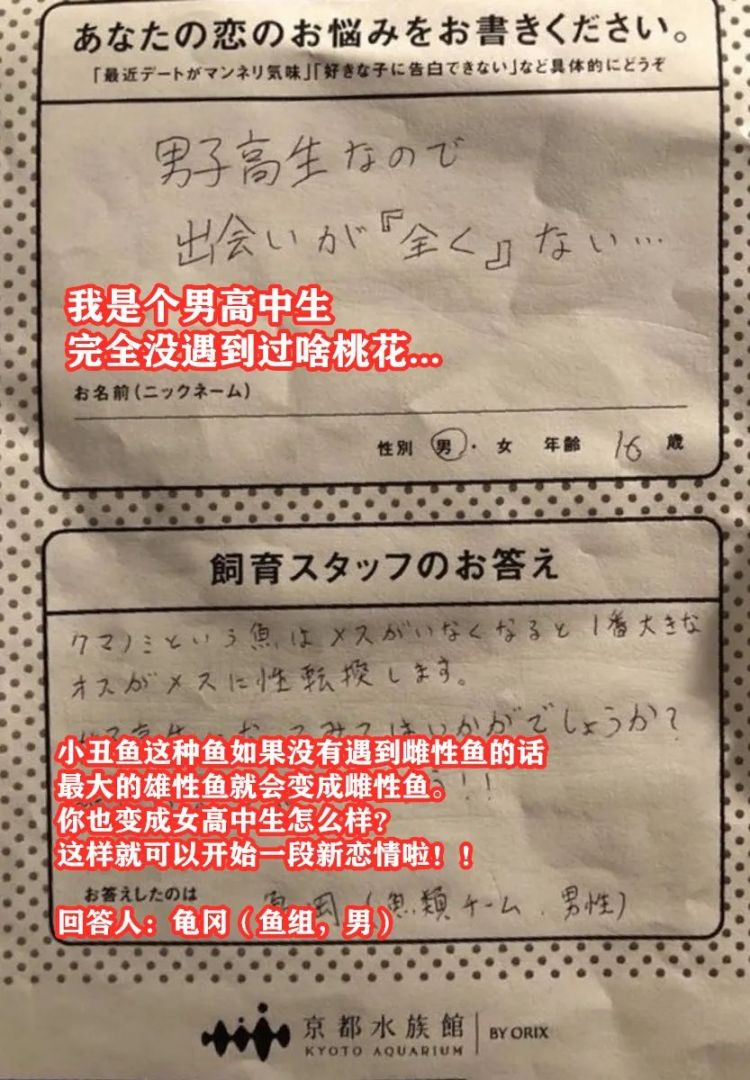 あなたの恋のお悩みをお書きください。
「最近デートがマンネリ気味」「好きな子に告白できない」など具体的にどうぞ
男子高生なので
出会いが『全く』ない…
我是个男高中生
完全没遇到过啥桃花...
お名前(ニックネーム)
性別 男・女 年齢 16 歳
飼育スタッフのお答え
クマノミという魚はメスがいなくなると1番大きな
オスがメスに性転換します。
なってみてはいかがでしょうか?
小丑鱼这种鱼如果没有遇到雌性鱼的话
最大的雄性鱼就会变成雌性鱼。
!!
你也变成女高中生怎么样?
这样就可以开始一段新恋情啦!!
お答えしたのは
岡(魚類チーム、男性)
回答人:龟冈(鱼组,男)
京都水族館 BY ORIX
KYOTO AQUARIUM